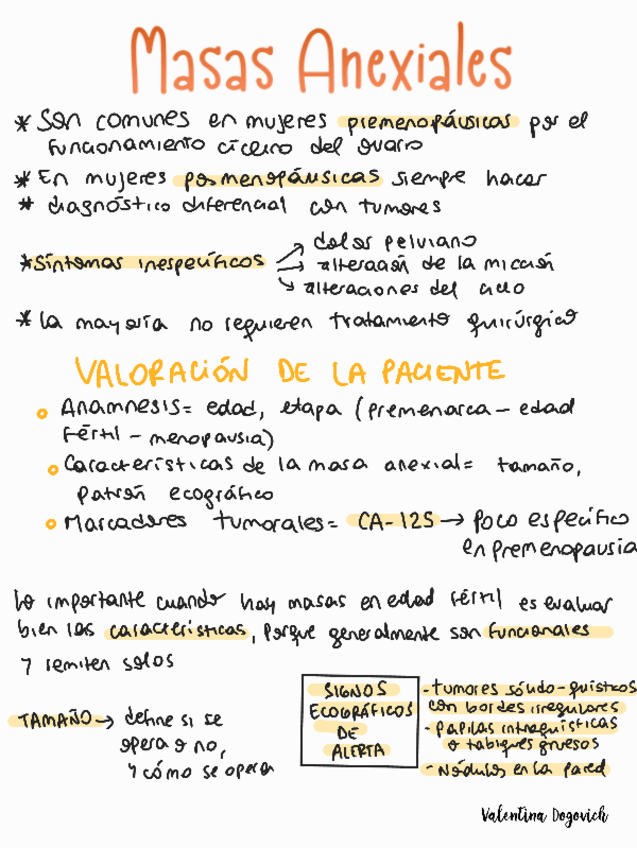 Masas Anexiales
* Son comunes en mujeres premenopáusicas por el
funcionamiento cíclico del ovario
* En mujeres posmenopáusicas siempre hacer
* diagnóstico diferencial con tumores
* Síntomas inespecíficos → dolor pelviano
→ alteración de la micción
→ alteraciones del ciclo
* La mayoría no requieren tratamiento quirúrgico
VALORACIÓN DE LA PACIENTE
○ Anamnesis= edad, etapa (premenarca - edad
fértil - menopausia)
○ Características de la masa anexial= tamaño,
patrón ecográfico
○ Marcadores tumorales= CA-125 → poco específico
en premenopausia
Lo importante cuando hay masas en edad fértil es evaluar
bien las características, porque generalmente son funcionales
y remiten solos
TAMAÑO → define si se
opera o no,
y cómo se opera
SIGNOS
ECOGRÁFICOS
DE
ALERTA
- tumores sólido-quísticos
con bordes irregulares
- papilas intraquísticas
o tabiques gruesos
- Nódulos en la pared
Valentina Dogovich